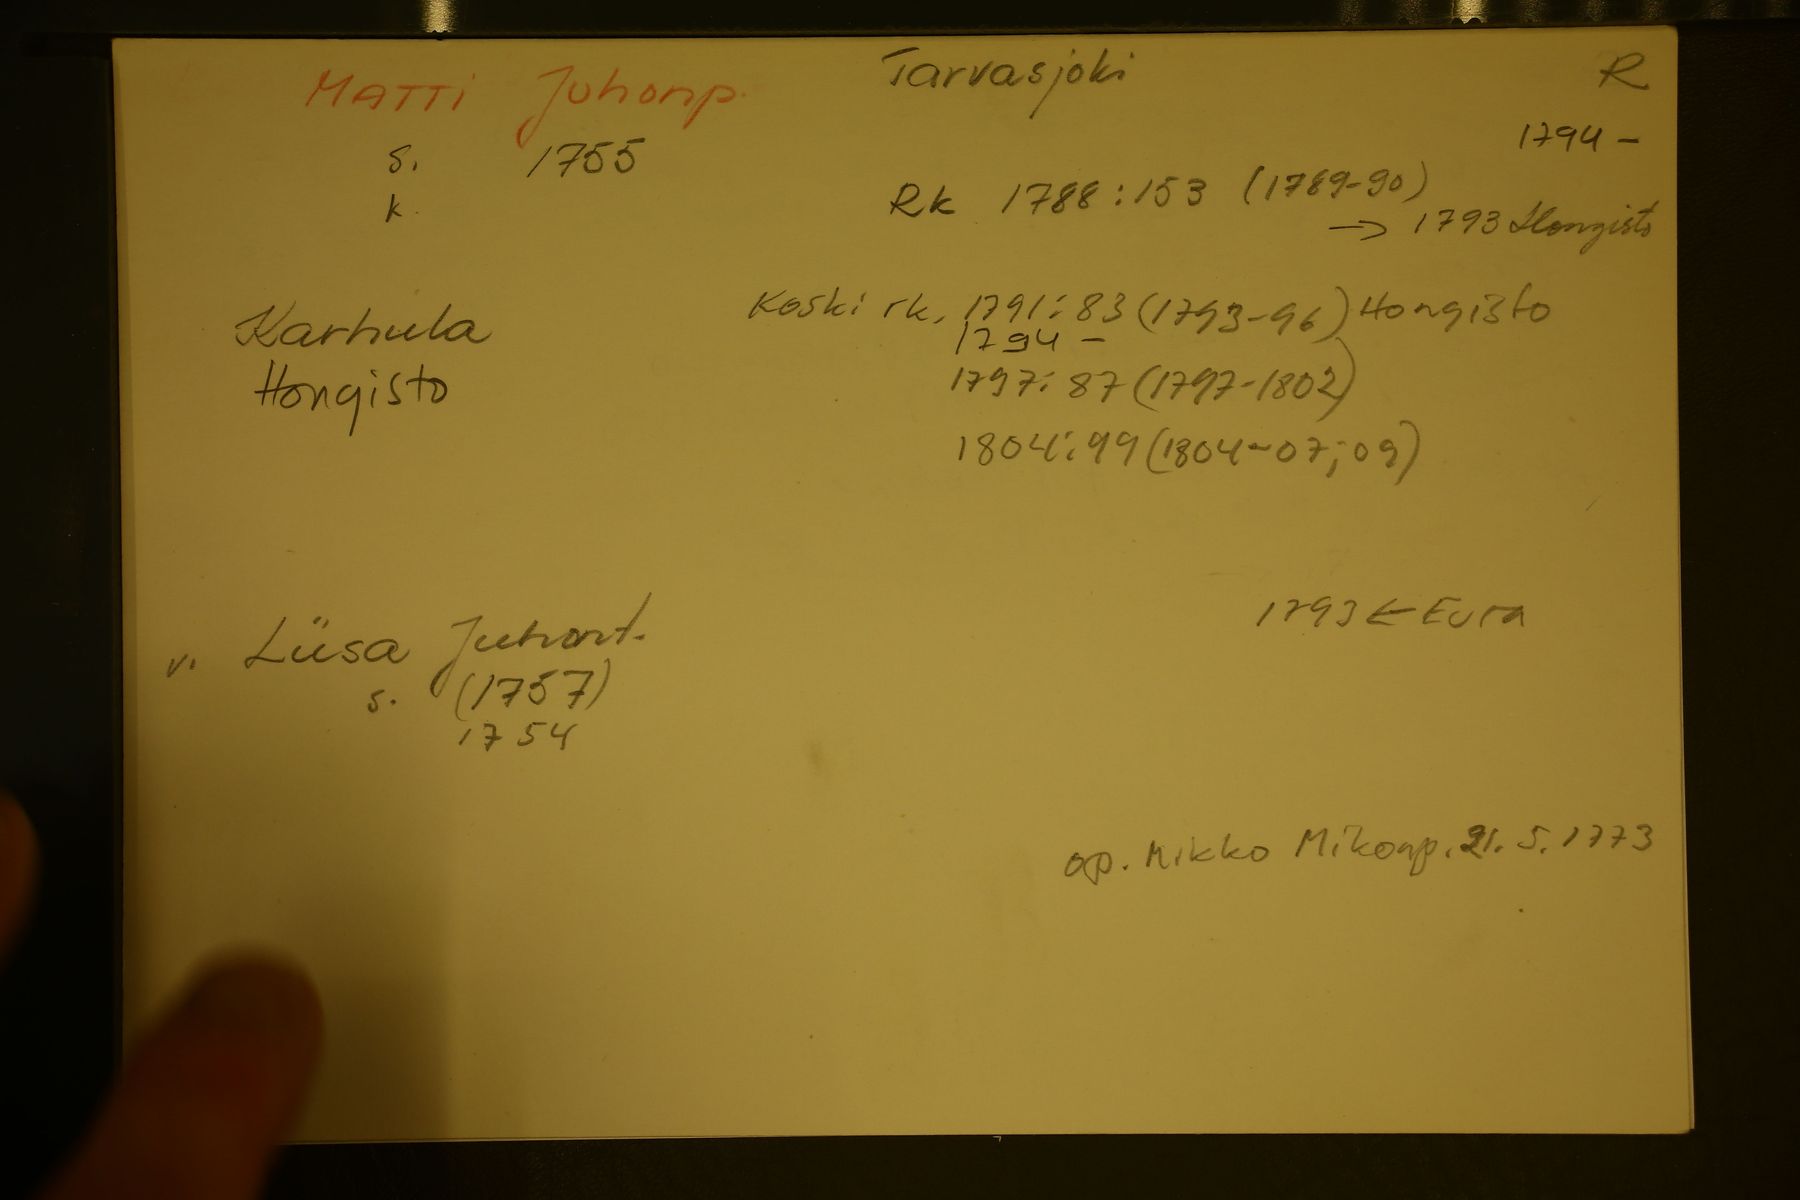 MATTI Juhonp. Tarvasjoki R
s. 1755 1794 -
k. Rk 1788:153 (1789-90)
→ 1793 Hongisto
Karhula Koski rk. 1791:83 (1793-96) Hongisto
1794 -
Hongisto 1797:87 (1797-1802)
1804:99 (1804-07;09)
1793 ← Eura
v. Liisa Juhont.
s. (1757)
1754
op. Mikko Mikonp. 21.5.1773